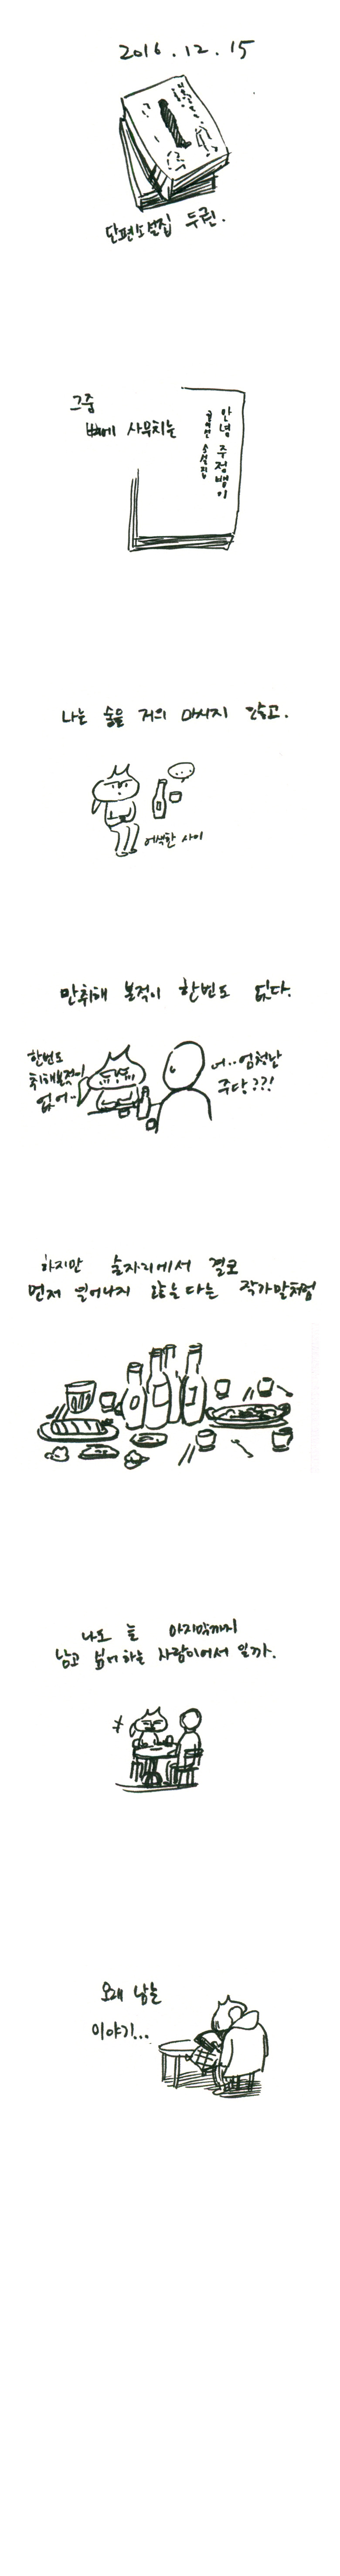 2016.12.15
단편소설집 두권.
그중
뼈에 사무치는
안녕 주정뱅이
권여선 소설집
나는 술을 거의 마시지 않고.
어색한 사이
만취해 본적이 한번도 없다.
한번도
취해본적이
없어..
어..엄청난
주당??!
하지만 술자리에서 결코
먼저 일어나지 않는다는 작가말처럼
나도 늘 마지막까지
남고 싶어하는 사람이어서 일까.
오래 남는
이야기...